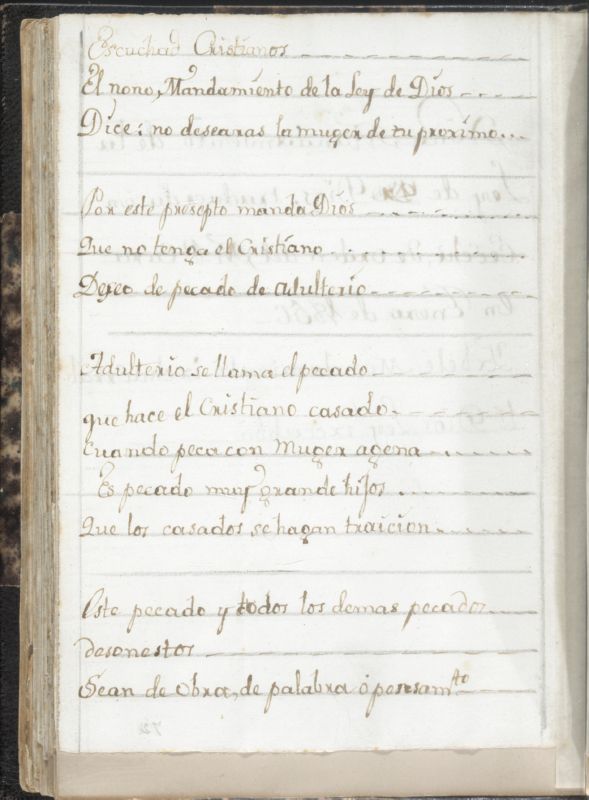 Escuchad Cristianos
El nono, Mandamiento de la Ley de Dios
Dice: no desearas la muger de tu proximo
Por este presepto manda Dios
Que no tenga el Cristiano
Deseo de pecado de adulterio
Adulterio se llama el pecado
que hace el Cristiano casado.
Cuando peca con Muger agena
Es pecado muy grande hijos
Que los casados se hagan traicion
Este pecado y todos los demas pecados
desonestos
Sean de obra, de palabra ó pensamto
72